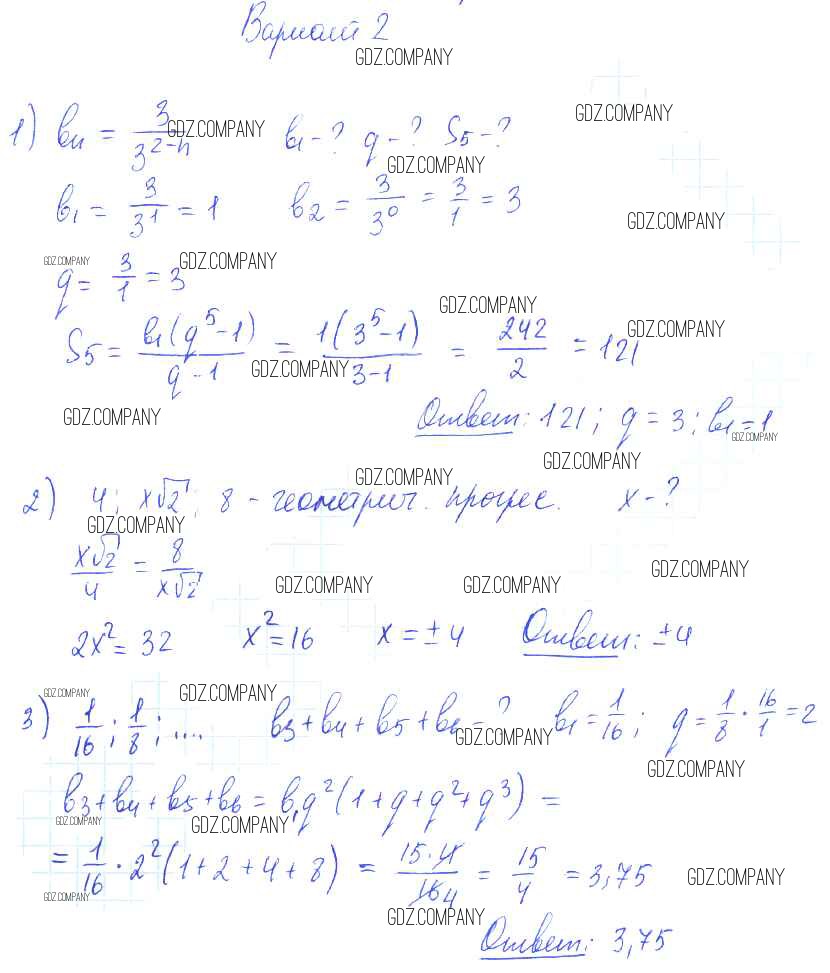 Вариант 2
GDZ.COMPANY
1) bₙ = 3/3^(2-n) b₁ - ? q - ? S₅ - ?
GDZ.COMPANY GDZ.COMPANY GDZ.COMPANY
b₁ = 3/3¹ = 1 b₂ = 3/3⁰ = 3/1 = 3
GDZ.COMPANY
GDZ.COMPANY GDZ.COMPANY
q = 3/1 = 3
GDZ.COMPANY GDZ.COMPANY
S₅ = b₁(q⁵-1)/(q-1) = 1(3⁵-1)/(3-1) = 242/2 = 121
GDZ.COMPANY GDZ.COMPANY
Ответ: 121; q = 3; b₁ = 1
GDZ.COMPANY GDZ.COMPANY
GDZ.COMPANY
2) 4; x√2; 8 - геометрич. прогрес. x - ?
GDZ.COMPANY GDZ.COMPANY
x√2/4 = 8/x√2
GDZ.COMPANY GDZ.COMPANY GDZ.COMPANY
2x² = 32 x² = 16 x = ±4 Ответ: ±4
GDZ.COMPANY GDZ.COMPANY
3) 1/16; 1/8; .... b₃ + b₄ + b₅ + b₆ = ? b₁ = 1/16; q = 1/8 · 16/1 = 2
GDZ.COMPANY GDZ.COMPANY
b₃ + b₄ + b₅ + b₆ = b₁q²(1 + q + q² + q³) =
GDZ.COMPANY GDZ.COMPANY
= 1/16 · 2²(1 + 2 + 4 + 8) = 15·4/16 4 = 15/4 = 3,75
GDZ.COMPANY GDZ.COMPANY
GDZ.COMPANY
Ответ: 3,75